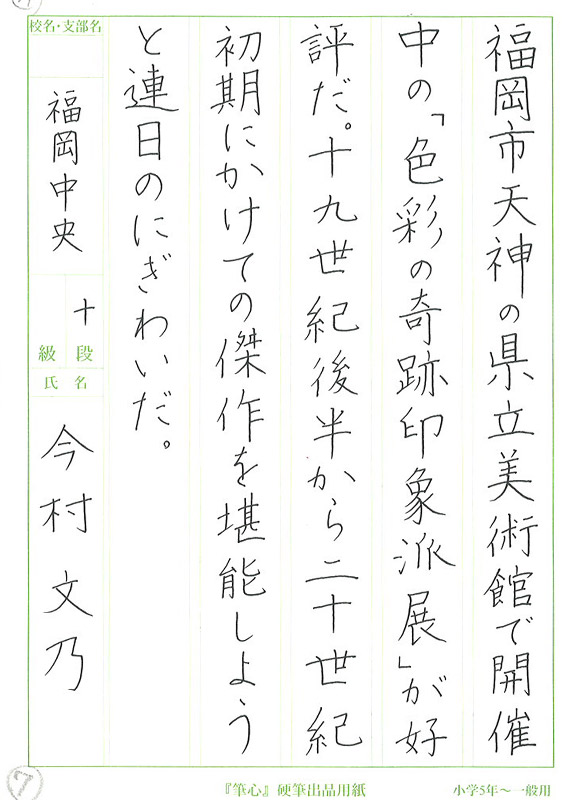 福岡市天神の県立美術館で開催
中の「色彩の奇跡印象派展」が好
評だ。十九世紀後半から二十世紀
初期にかけての傑作を堪能しよう
と連日のにぎわいだ。
校名・支部名
福岡中央
十
級 段
氏 名
今村 文乃
⑦
『筆心』硬筆出品用紙
小学5年〜一般用